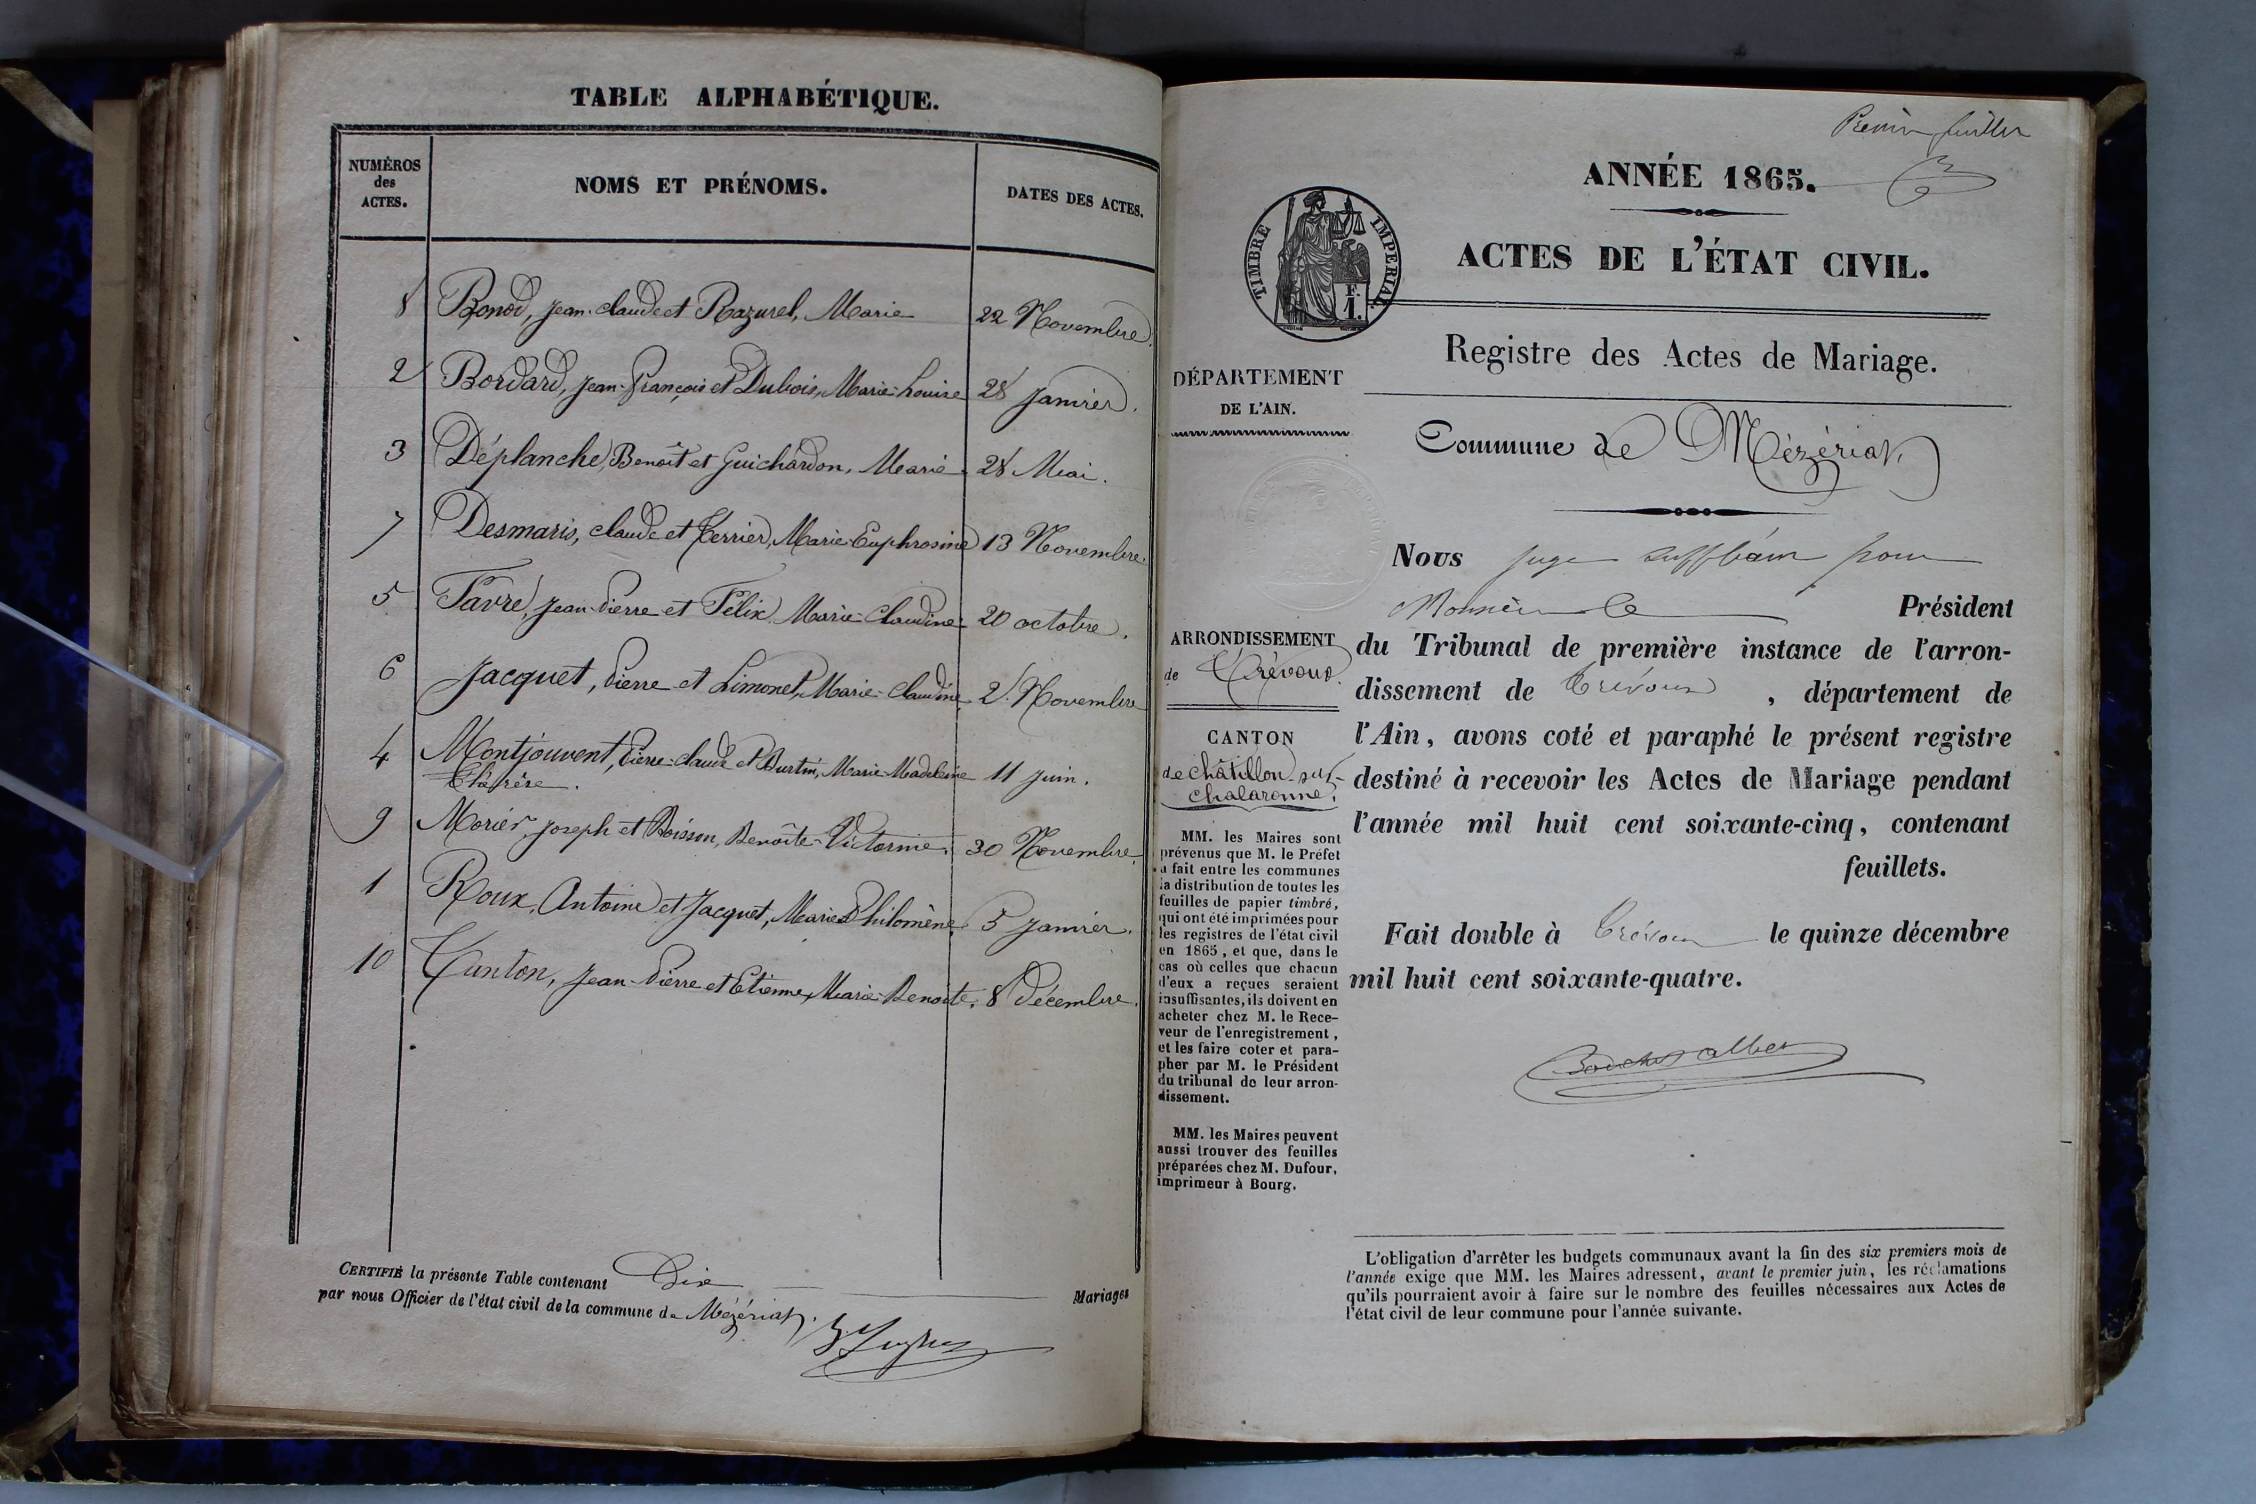 TABLE ALPHABÉTIQUE.
NUMÉROS
des
ACTES.
NOMS ET PRÉNOMS.
DATES DES ACTES.
8 Bonod, Jean-Claude et Razurel, Marie 22 Novembre.
2 Bordard, Jean-François et Dubois, Marie-Louise 28 Janvier.
3 Déplanche, Benoît et Guichardon, Marie 28 Mai.
7 Desmaris, Claude et Ferrier, Marie-Euphrosine 13 Novembre.
5 Favre, Jean-Pierre et Félix, Marie-Claudine 20 octobre.
6 Jacquet, Pierre et Limonet, Marie-Claudine 2 Novembre
4 Montjouvent, Pierre-Claude et Burtin, Marie-Madeleine 11 Juin.
9 Morier, Joseph et Boisson, Benoîte-Victorine. 30 Novembre.
1 Roux, Antoine et Jacquet, Marie Philomène 5 Janvier.
10 Tanton, Jean-Pierre et Etienne, Marie-Benoite. 8 Décembre.
CERTIFIÉ la présente Table contenant Dix Mariages
par nous Officier de l'état civil de la commune de Mézériat.
Premier feuillet
ANNÉE 1865.
TIMBRE IMPERIAL
F.
1.
ACTES DE L'ÉTAT CIVIL.
Registre des Actes de Mariage.
DÉPARTEMENT
DE L'AIN.
Commune de Mézériat
Nous juge suppléant pour
Monsieur le Président
du Tribunal de première instance de l'arron-
dissement de Trévoux, département de
l'Ain, avons coté et paraphé le présent registre
destiné à recevoir les Actes de Mariage pendant
l'année mil huit cent soixante-cinq, contenant
feuillets.
Fait double à Trévoux le quinze décembre
mil huit cent soixante-quatre.
ARRONDISSEMENT
de Trévoux.
CANTON
de Châtillon-sur-
Chalaronne.
MM. les Maires sont
prévenus que M. le Préfet
a fait entre les communes
la distribution de toutes les
feuilles de papier timbré,
qui ont été imprimées pour
les registres de l'état civil
en 1865, et que, dans le
cas où celles que chacun
d'eux a reçues seraient
insuffisantes, ils doivent en
acheter chez M. le Rece-
veur de l'enregistrement,
et les faire coter et para-
pher par M. le Président
du tribunal de leur arron-
dissement.
MM. les Maires peuvent
aussi trouver des feuilles
préparées chez M. Dufour,
imprimeur à Bourg.
L'obligation d'arrêter les budgets communaux avant la fin des six premiers mois de
l'année exige que MM. les Maires adressent, avant le premier juin, les réclamations
qu'ils pourraient avoir à faire sur le nombre des feuilles nécessaires aux Actes de
l'état civil de leur commune pour l'année suivante.